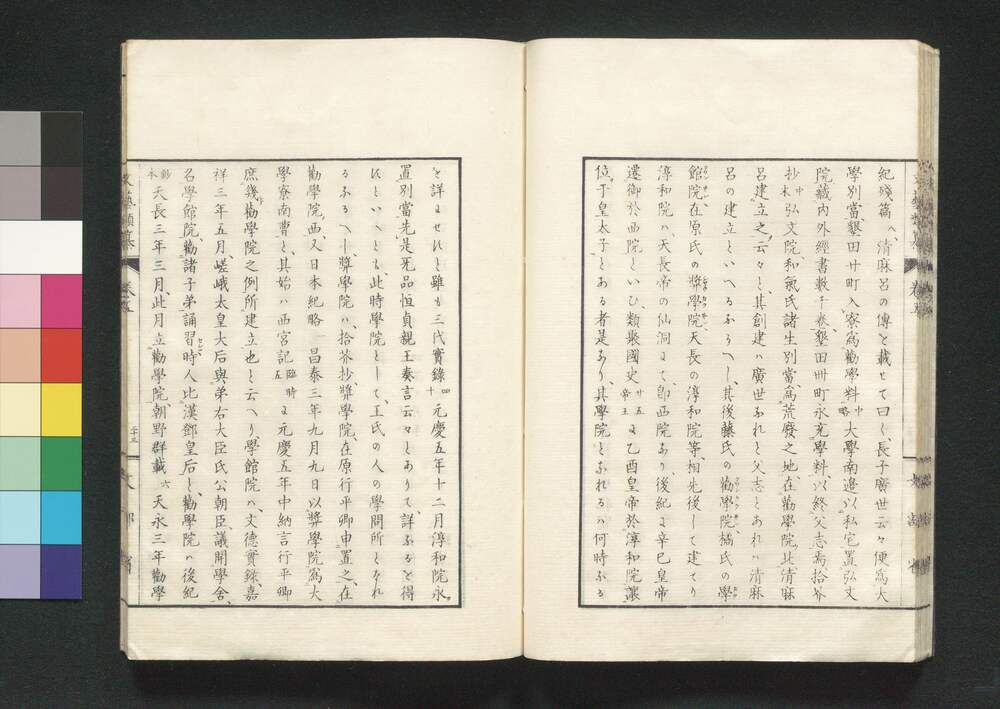 紀殘篇ヘ、清麻呂の傳を載せて曰く、長子廣世云々便爲大
學別當墾田廿町入寮爲勸學料中略大學南邊以私宅置弘文
院藏内外經書數千卷墾田卌町永充學料以終父志焉拾芥
抄中末弘文院和氣氏諸生別當爲荒廢之地在勸學院北清麻
呂建立之云々と、其創建ハ廣世なれと父志とあれハ清麻
呂の建立といへるなるへし、其後藤氏の勸學院橘氏の學
館院在原氏の獎學院天長の淳和院等、相先後して建てり
淳和院ハ天長帝の仙洞にて、卽西院なり、後紀に辛巳皇帝
遷御於西院といひ、類聚國史廿五帝王に乙酉皇帝於淳和院讓
位于皇太子とある者是なり其學院となれるハ何時なる
を詳にせれと雖も三代實錄四十元慶五年十二月淳和院永
置別當先是无品恒貞親王奏言云々とありて、詳なるを得
れといへとも、此時學院として、王氏の人の學問所となれ
るなるへし、獎學院ハ、拾芥抄獎學院、在原行平卿申置之、在
勸學院西、又日本紀略 昌泰三年九月九日以獎學院爲大
學寮南曹と、其始ハ西宮記臨時五に元慶五年中納言行平卿
庶幾勸學院之例所建立也と云へり學館院ハ、文德實錄、嘉
祥三年五月嵯峨太皇大后與弟右大臣氏公朝臣議開學舍
名學館院勸諸子弟誦習時人比漢鄧皇后と、勸學院ハ後紀
鈔本天長三年三月、此月立勸學院、朝野群載六天永三年勸學
文藝類纂 卷五